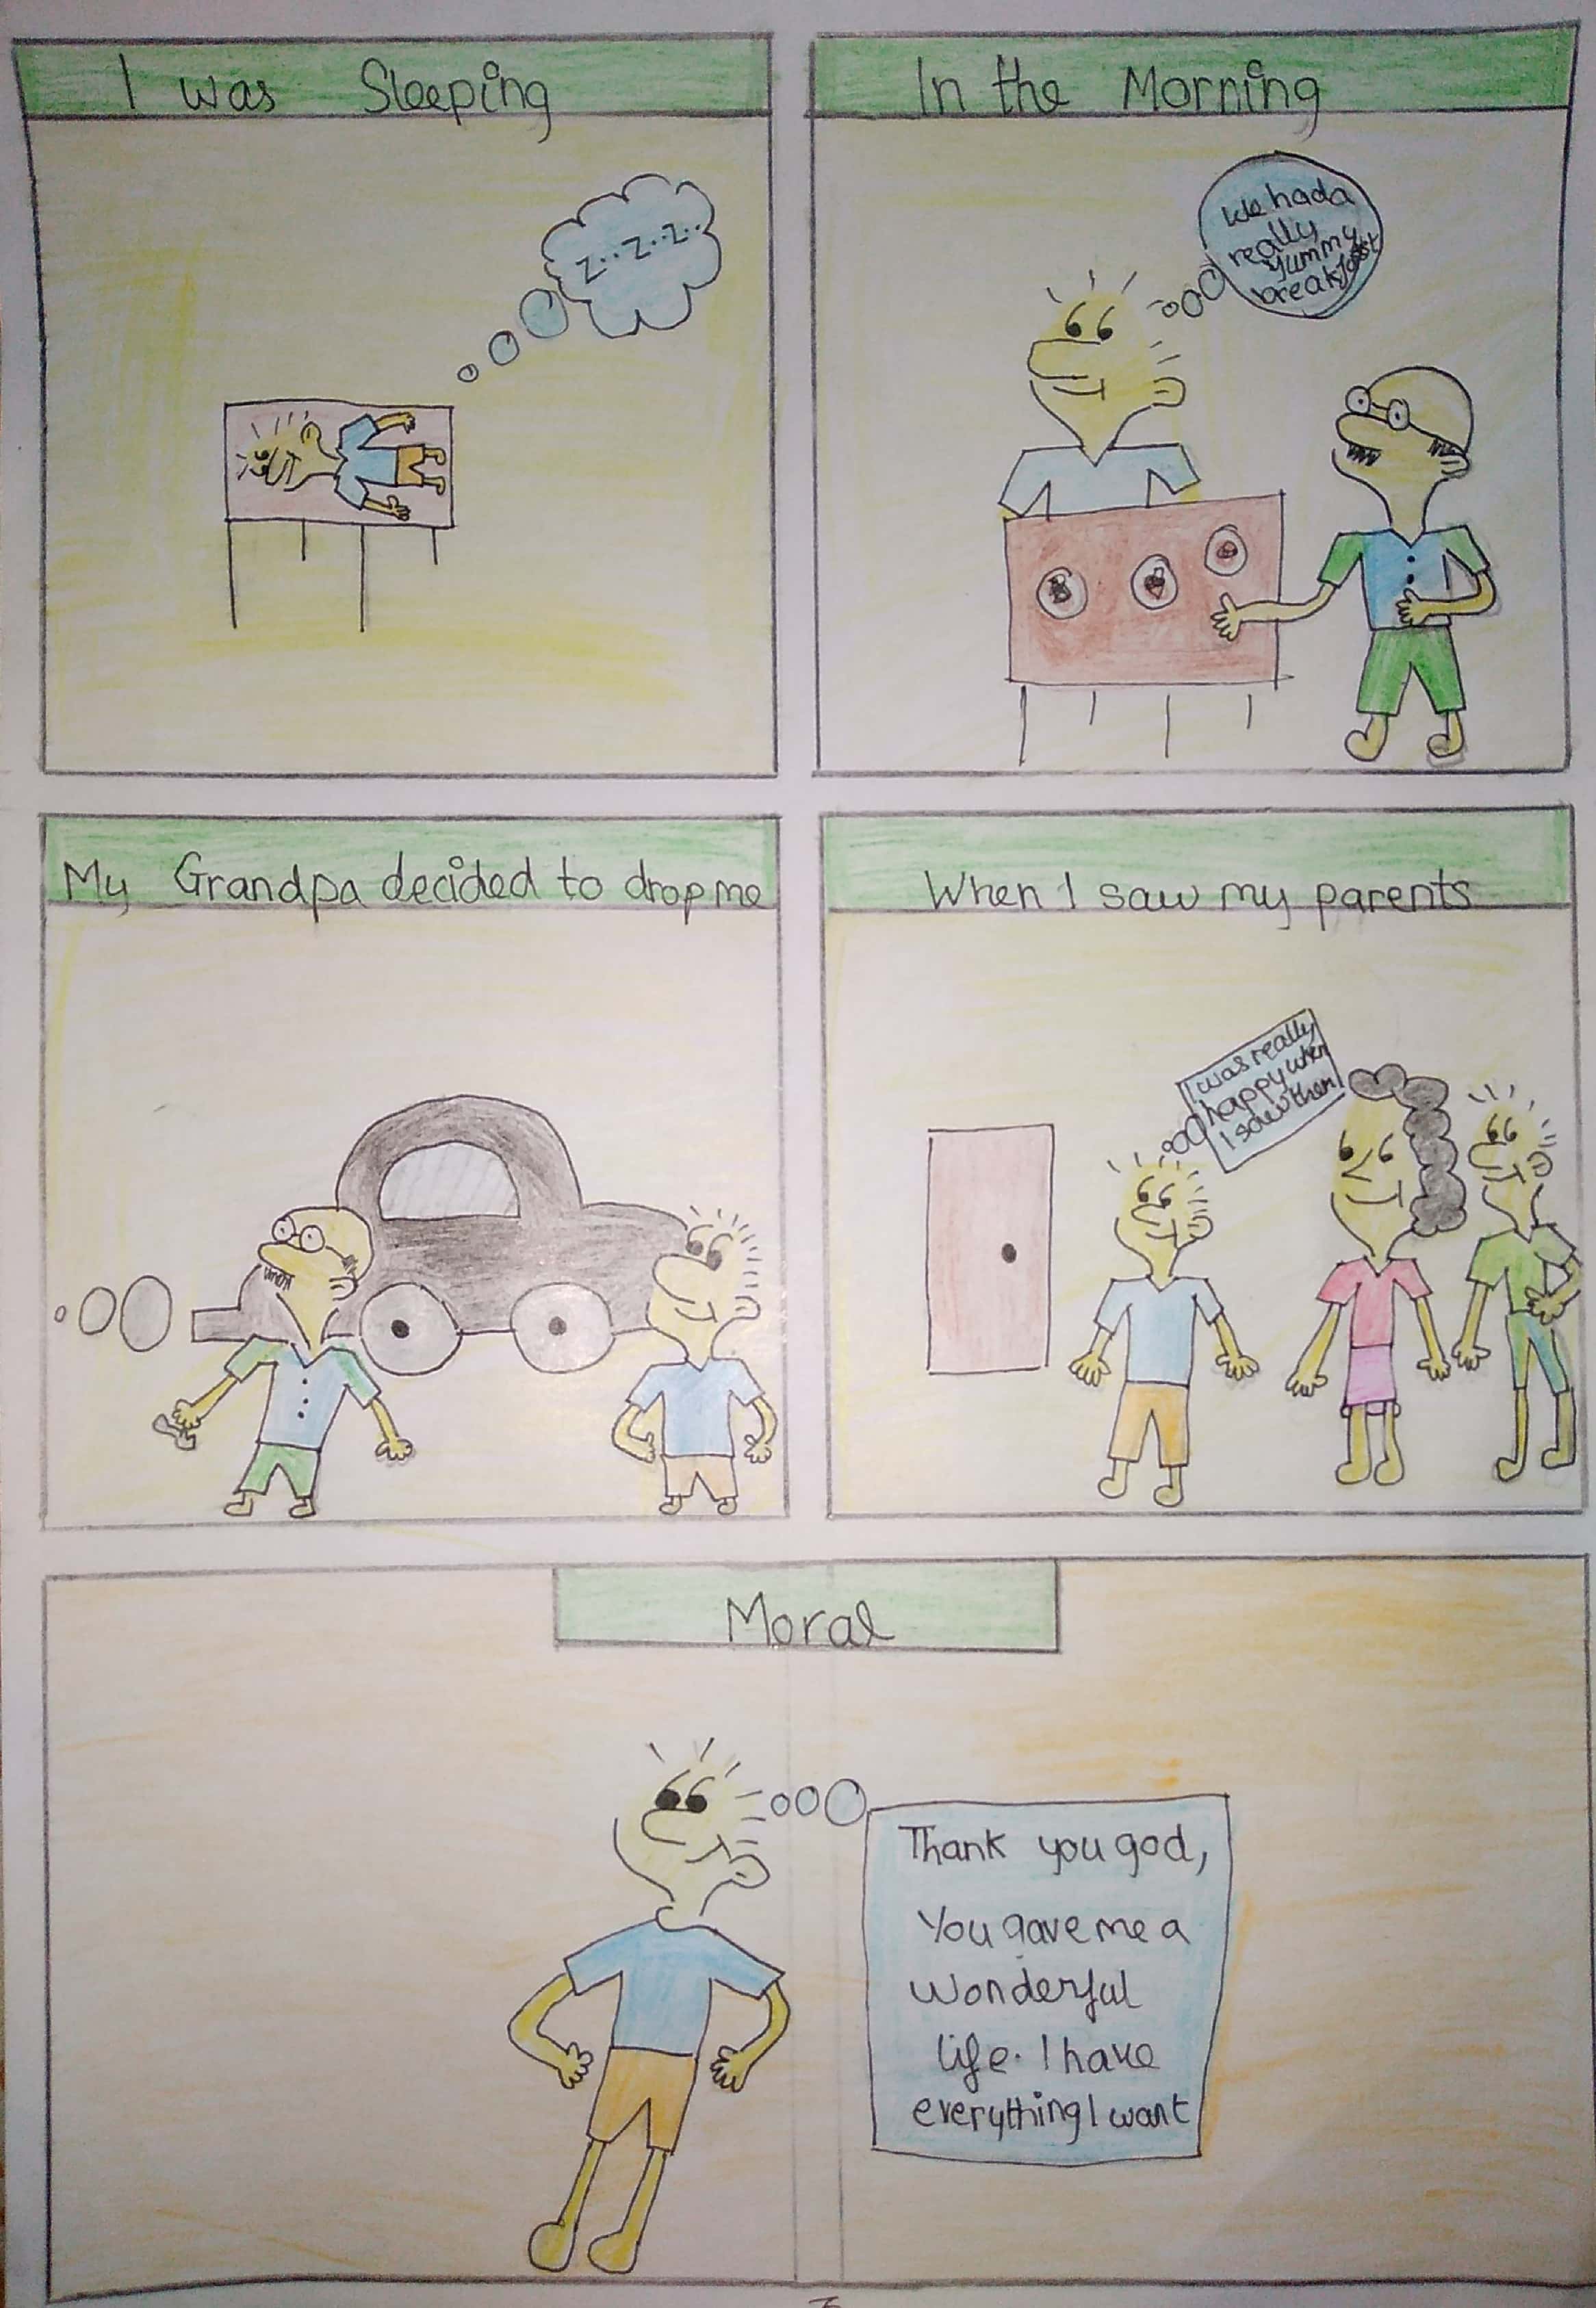 I was Sleeping
z..z..z..
In the Morning
We had a
really
yummy
breakfast
My Grandpa decided to drop me
When I saw my parents
I was really
happy when
I saw them
Moral
Thank you god,
You gave me a
wonderful
life. I have
everything I want